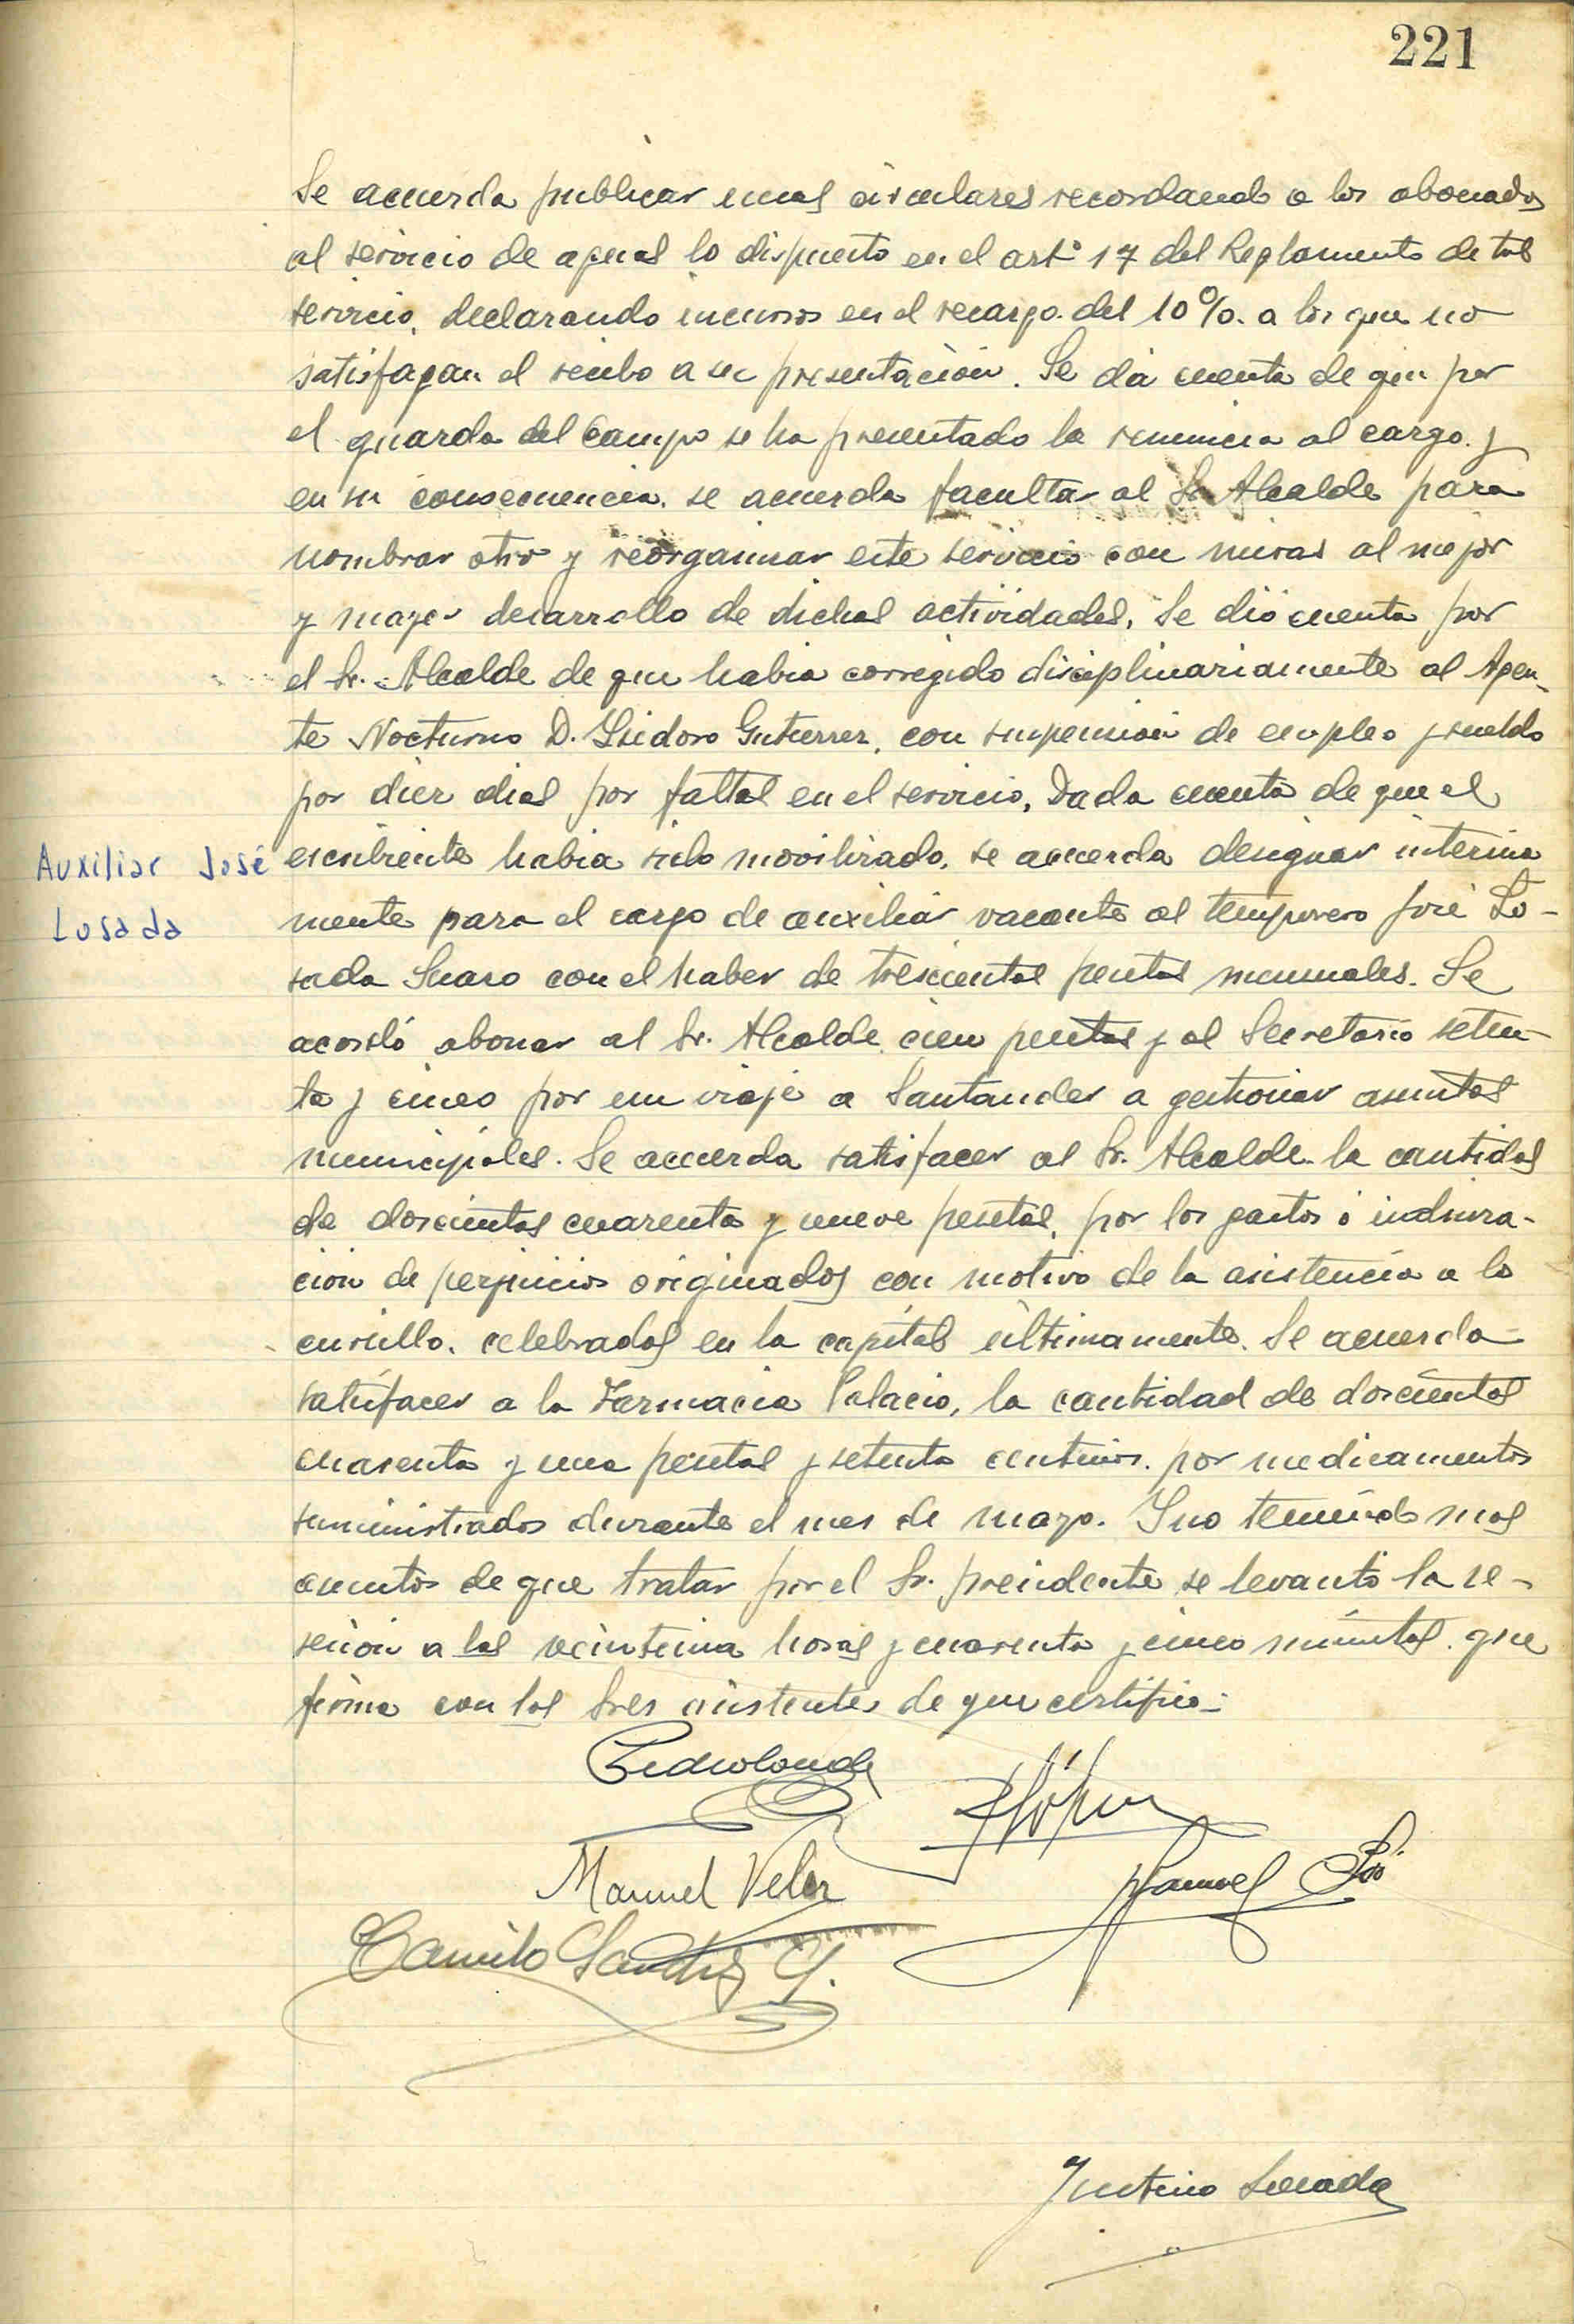 221
Se acuerda publicar unas circulares recordando a los abonados
al servicio de aguas lo dispuesto en el artº 17 del Reglamento de tal
servicio, declarando incursos en el recargo del 10%. a los que no
satisfagan el recibo a su presentación. Se dá cuenta de que por
el guarda del Campo se ha presentado la renuncia al cargo y
en su consecuencia, se acuerda facultar al Sr. Alcalde para
nombrar otro y reorganizar este servicio con miras al mejor
y mayor desarrollo de dichas actividades. Se dió cuenta por
el Sr. Alcalde de que habia corregido disciplinariamente al Agen-
te Nocturno D. Isidoro Gutierrez, con suspension de empleo y sueldo
por diez dias por faltas en el servicio. Dada cuenta de que el
Auxiliar José
Losada
escribiente habia sido movilizado, se acuerda designar interina
mente para el cargo de auxiliar vacante al temporero José Lo-
sada con el haber de trescientas pesetas mensuales. Se
acordó abonar al Sr. Alcalde cien pesetas y al Secretario seten-
ta y cinco por un viaje a Santander a gestionar asuntos
municipales. Se acuerda satisfacer al Sr. Alcalde la cantidad
de doscientas cuarenta y nueve pesetas, por los gastos é
cion de perjuicios originados con motivo de la asistencia a lo
cursillo, celebrados en la capital últimamente. Se acuerda
satisfacer a la Farmacia Palacio, la cantidad de doscientas
cuarenta y una pesetas y setenta centimos por medicamentos
suministrados durante el mes de mayo. Y no teniendo mas
asuntos de que tratar por el Sr. presidente se levantó la se-
sesion a las veintiuna horas y cuarenta y cinco minutos que
firma con los Sres asistentes de que certifico.-
Manuel Velez
R López
Manuel
Camilo Sanchez G.
Justino Losada